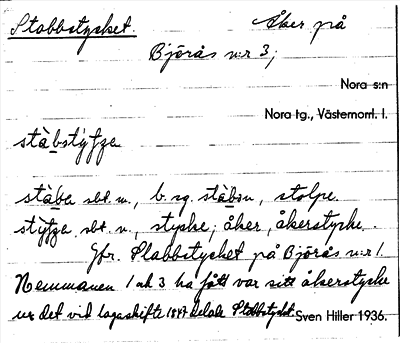 Stabbstycket. Åker på
Björås n:r 3;
Nora s:n
Nora tg., Västernorrl. l.
stàbstýʃƷa
stàba sbst. m., b. sg. stàban, stolpe.
stýʃƷa sbt. n., stycke, åker, åkerstycke.
Jfr. Stabbstycket på Björås n:r 1.
Hemmanen 1 och 3 ha fått var sitt åkerstycke
ur det vid lagaskifte 1847 delade Stabbstycket
Sven Hiller 1936.